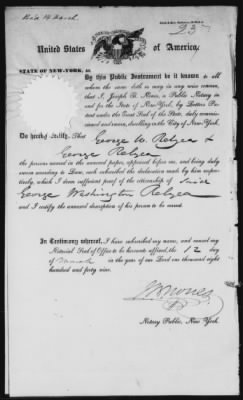 United States of America.
STATE OF NEW-YORK, ss.
By this Public Instrument be it known to all
whom the same doth or may in any wise concern,
that I, Joseph B. Nones, a Public Notary in
and for the State of New-York, by Letters Pa-
tent under the Great Seal of the State, duly commis-
sioned and sworn, dwelling in the City of New-York.
Do hereby certify, That George W. Relyea &
George Relyea
the persons named in the annexed paper, appeared before me, and being duly
sworn according to Law, each subscribed the declaration made by him respec-
tively, which I deem sufficient proof of the citizenship of said
George Washington Relyea
and I certify the annexed description of his person to be correct.
In Testimony whereof, I have subscribed my name, and caused my
Notarial Seal of Office to be hereunto affixed, the 12 day
of March in the year of our Lord one thousand eight
hundred and forty nine.
J B Nones
Notary Public, New York.